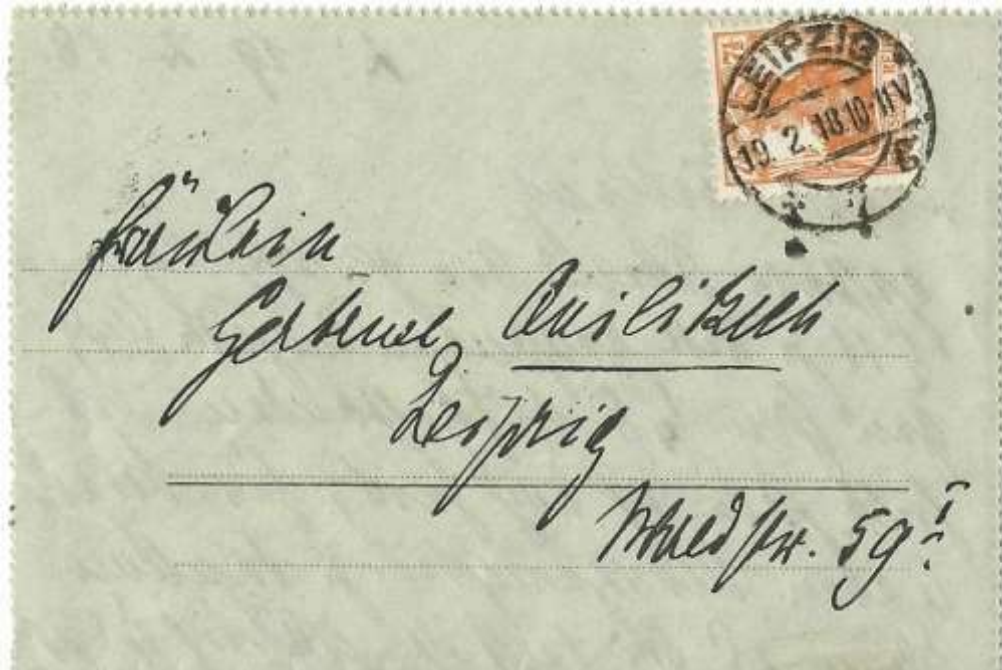 LEIPZIG
19. 2. 18. 10-11 V
Fräulein
Gertrud Quilitzsch
Leipzig
Waldstr. 59 I